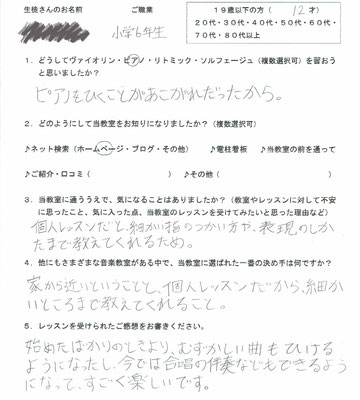 生徒さんのお名前 ご職業 19歳以下の方（ 12才 ）
小学6年生 20代・30代・40代・50代・60代・
70代・80代以上
1．どうしてヴァイオリン・ピアノ・リトミック・ソルフェージュ（複数選択可）を習おう
と思いましたか？
ピアノをひくことがあこがれだったから。
2．どのようにして当教室をお知りになりましたか？（複数選択可）
♪ネット検索（ホームページ・ブログ・その他） ♪電柱看板 ♪当教室の前を通って
♪ご紹介・口コミ（ ） ♪その他（ ）
3．当教室に通ううえで、気になることはありましたか？（教室やレッスンに対して不安
に思ったこと、気に入った点、当教室のレッスンを受けてみたいと思った理由など）
個人レッスンだと、細かい指のつかい方や、表現のしか
たまで教えてくれるため。
4．他にもさまざまな音楽教室がある中で、当教室に選ばれた一番の決め手は何ですか？
家から近いということと、個人レッスンだから、細か
いところまで教えてくれること。
5．レッスンを受けられたご感想をお書きください。
始めたばかりのときより、むずかしい曲もひける
ようになったし、今では合唱の伴奏などもできるよう
になって、すごく楽しいです。